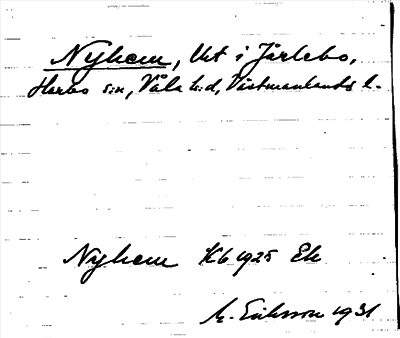 Nyhem, Utt i Järlebo,
Harbo s:n, Våla h:d, Västmanlands l.
Nyhem Kb 1925 Ek
M. Eriksson 1931